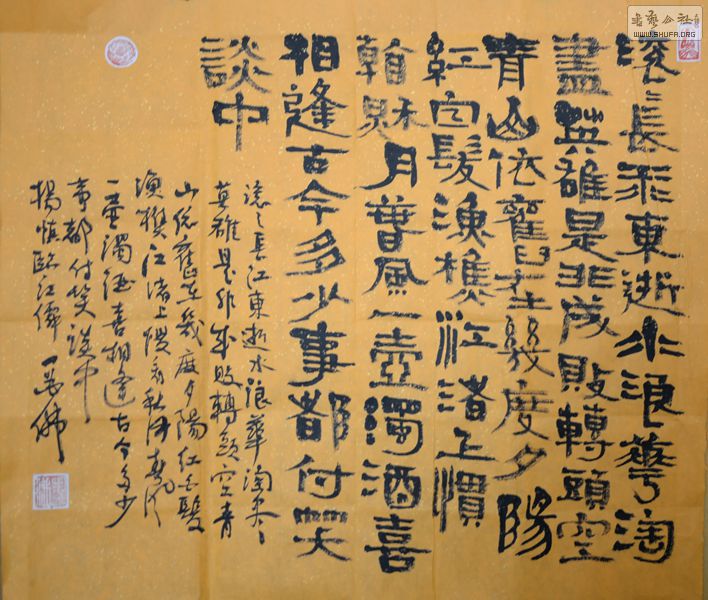 滚〻長江東逝水浪華淘
盡英雄是非成敗轉頭空
青山依舊在幾度夕陽
紅白髮漁樵江渚上慣
看秋月春風一壺濁酒喜
相逢古今多少事都付笑
談中
滚〻長江東逝水浪華淘盡
英雄是非成敗轉頭空青
山依舊在幾度夕陽紅白髮
漁樵江渚上慣看秋月春風
一壺濁酒喜相逢古今多少
事都付笑談中
楊慎臨江仙 一 佛
書藝公社
WWW.SHUFA.ORG